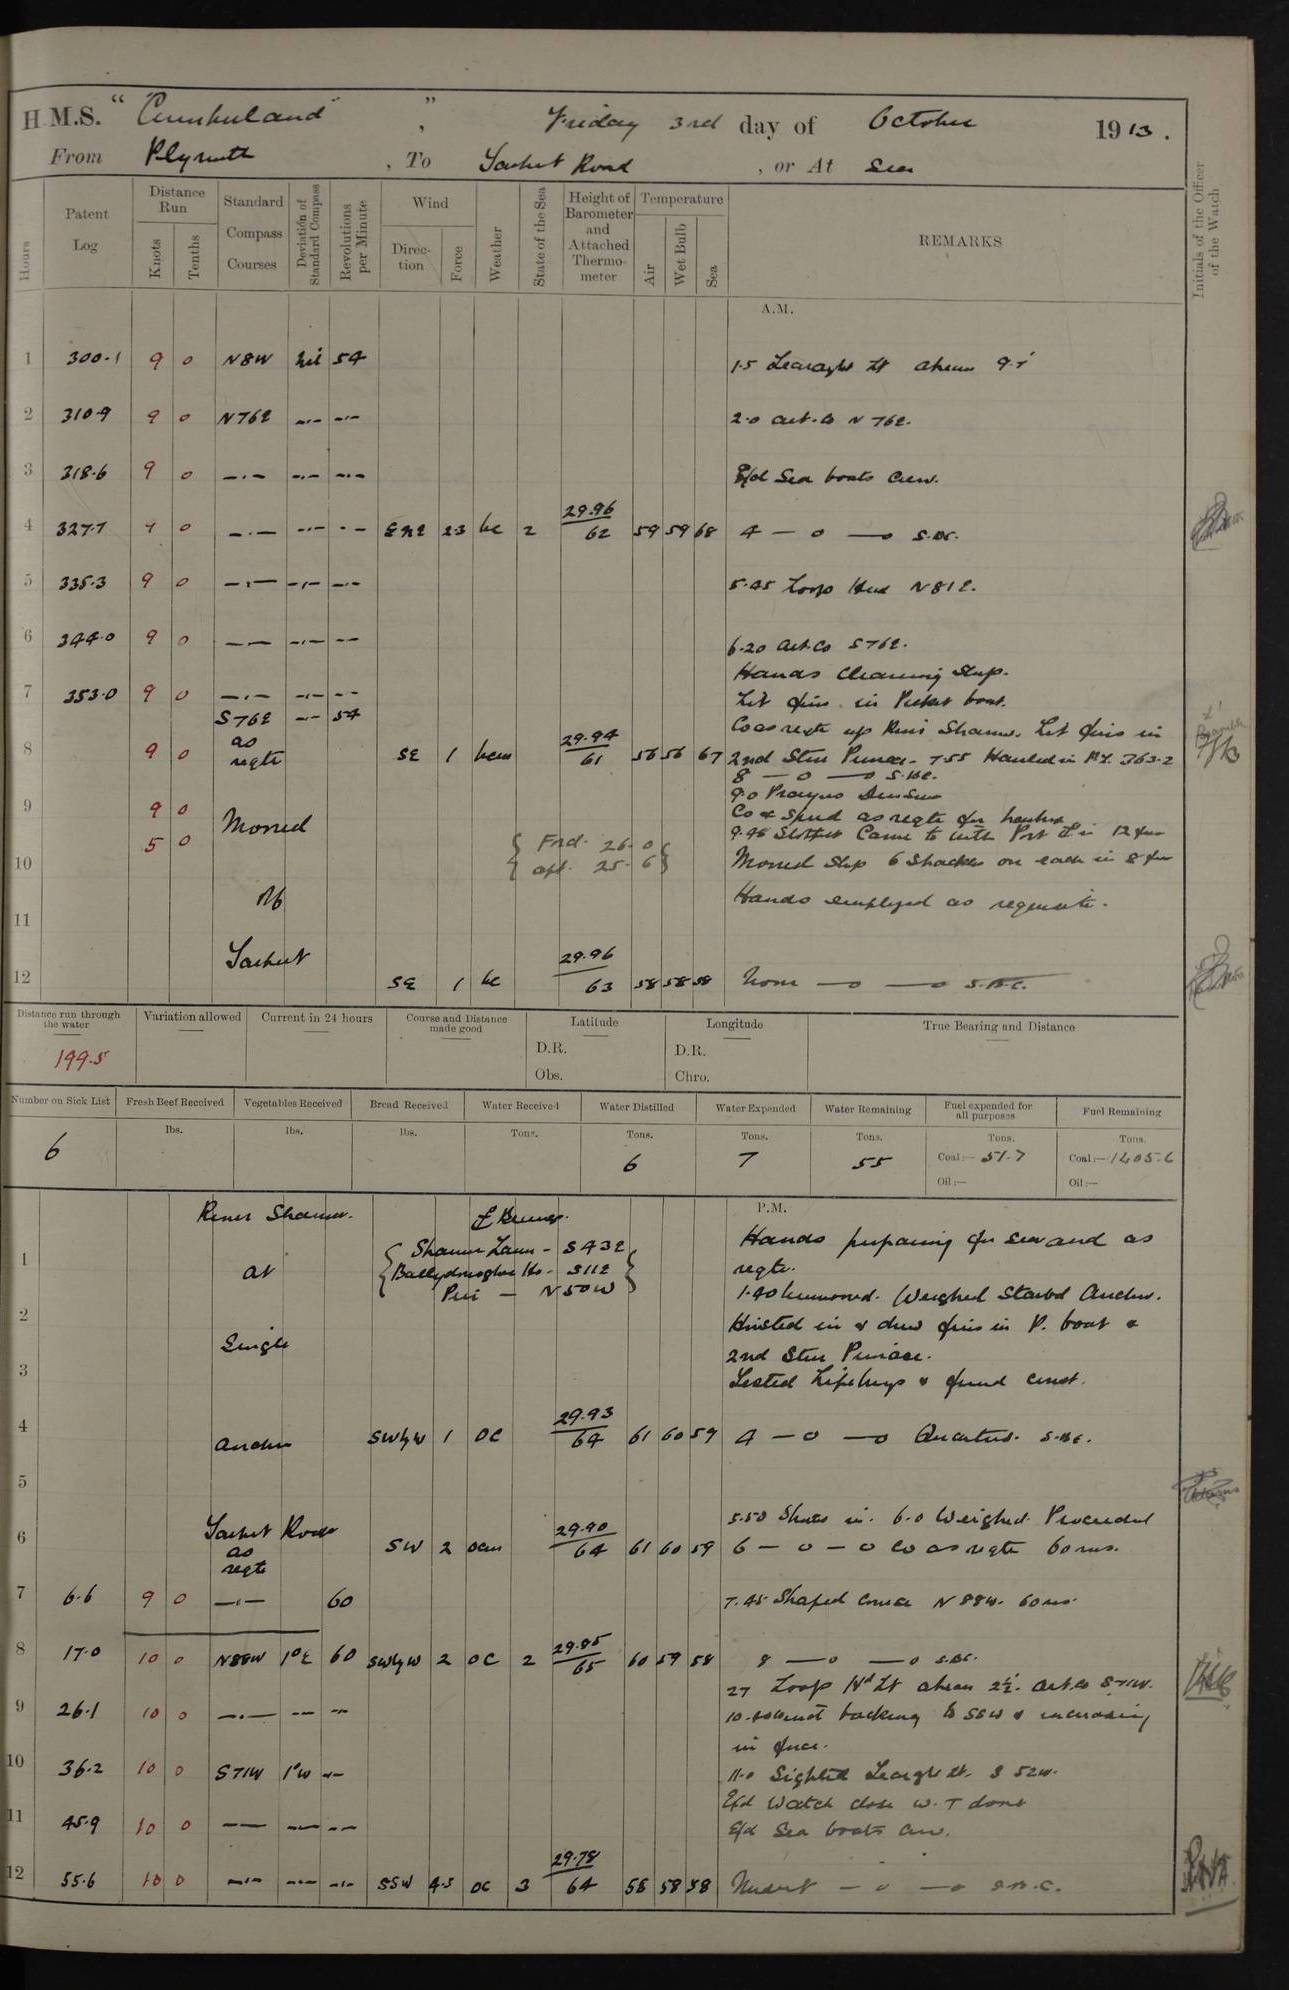 H.M.S. "Cumberland", Friday 3rd day of October 1913.
From Plymouth, To Tarbert Road, or At Sea
Hours
Patent Log
Distance Run
Knots
Tenths
Standard Compass Courses
Deviation of Standard Compass
Revolutions per Minute
Wind
Direction
Force
Weather
State of the Sea
Height of Barometer and Attached Thermometer
Temperature
Air
Wet Bulb
Sea
REMARKS
Initials of the Officer of the Watch
A.M.
1 300.1 9 0 N8W nil 54 1.5 Lt abeam
2 310.9 9 0 N76E 2.0 alt. Co N76E.
3 318.6 9 0 Sea boats crew.
4 327.7 9 0 ENE 2.3 bc 2 29.96 62 59 59 68 4 — o — o S.B.C.
5 335.3 9 0 5.45 Loop Head N81E.
6 344.0 9 0 6.20 alt. Co S76E.
Hands cleaning ship.
7 353.0 9 0 Lit fires in Picket boat.
S76E 54 Co as reqte up River Shannon. Lit fires in
8 9 0 as reqte SE 1 bcm 29.94 61 56 56 67 2nd Steam Pinnace. 7.55 Hauled in P.L. 363.2
8 — o — o S.B.C.
9.0 Prayers Divisions
9 9 0 Co & speed as reqte for
5 0 Moored 9.48 Stopped Came to with Port in 12 fms
10 { Ford. 26-0 aft. 25-6 } Moored Ship 6 Shackles on each in 8 fms
11 Off Hands employed as requisite.
12 Tarbert SE 1 bc 29.96 63 58 58 58 Noon — o — o S.B.C.
Distance run through the water 199.5
Variation allowed
Current in 24 hours
Course and Distance made good
Latitude D.R. Obs.
Longitude D.R. Chro.
True Bearing and Distance
Number on Sick List 6
Fresh Beef Received lbs.
Vegetables Received lbs.
Bread Received lbs.
Water Received Tons.
Water Distilled Tons. 6
Water Expended Tons. 7
Water Remaining Tons. 55
Fuel expended for all purposes Tons. Coal:— 51.7 Oil:—
Fuel Remaining Tons. Coal:— 1405.6 Oil:—
P.M.
River Shannon.
Hands preparing for sea and as
1 at { Shannon Lawn - S43E reqte.
S11E
Pier — N50W } 1.40 Unmoored. Weighed Starbd Anchor.
2 Hoisted in & drew fires in P. boat &
Single 2nd Steam Pinnace.
3 Tested Lifebuoys & found correct.
4 anchor SWbyW 1 oc 29.93 64 61 60 59 4 — o — o Quarters. S.B.C.
5
Tarbert Road 5.50 in. 6.0 Weighed. Proceeded
6 as reqte SW 2 ocm 29.90 64 61 60 59 6 — o — o Co as reqte 60 revs.
7 6.6 9 0 60 7.45 Shaped course N88W. 60 revs.
8 17.0 10 0 N88W 1°E 60 SWbyW 2 oc 2 29.85 65 60 59 58 8 — o — o S.B.C.
Loop Hd Lt abeam 2½'. alt. Co S71W.
9 26.1 10 0 backing to SSW & increasing
in force.
10 36.2 10 0 S71W 1°W 11.0 Sighted Lt. S52W.
Watch close W.T doors
11 45.9 10 0 Sea boats crew.
12 55.6 10 0 SSW 4.5 oc 3 29.78 64 58 58 58 Midnt — o — o S.B.C.